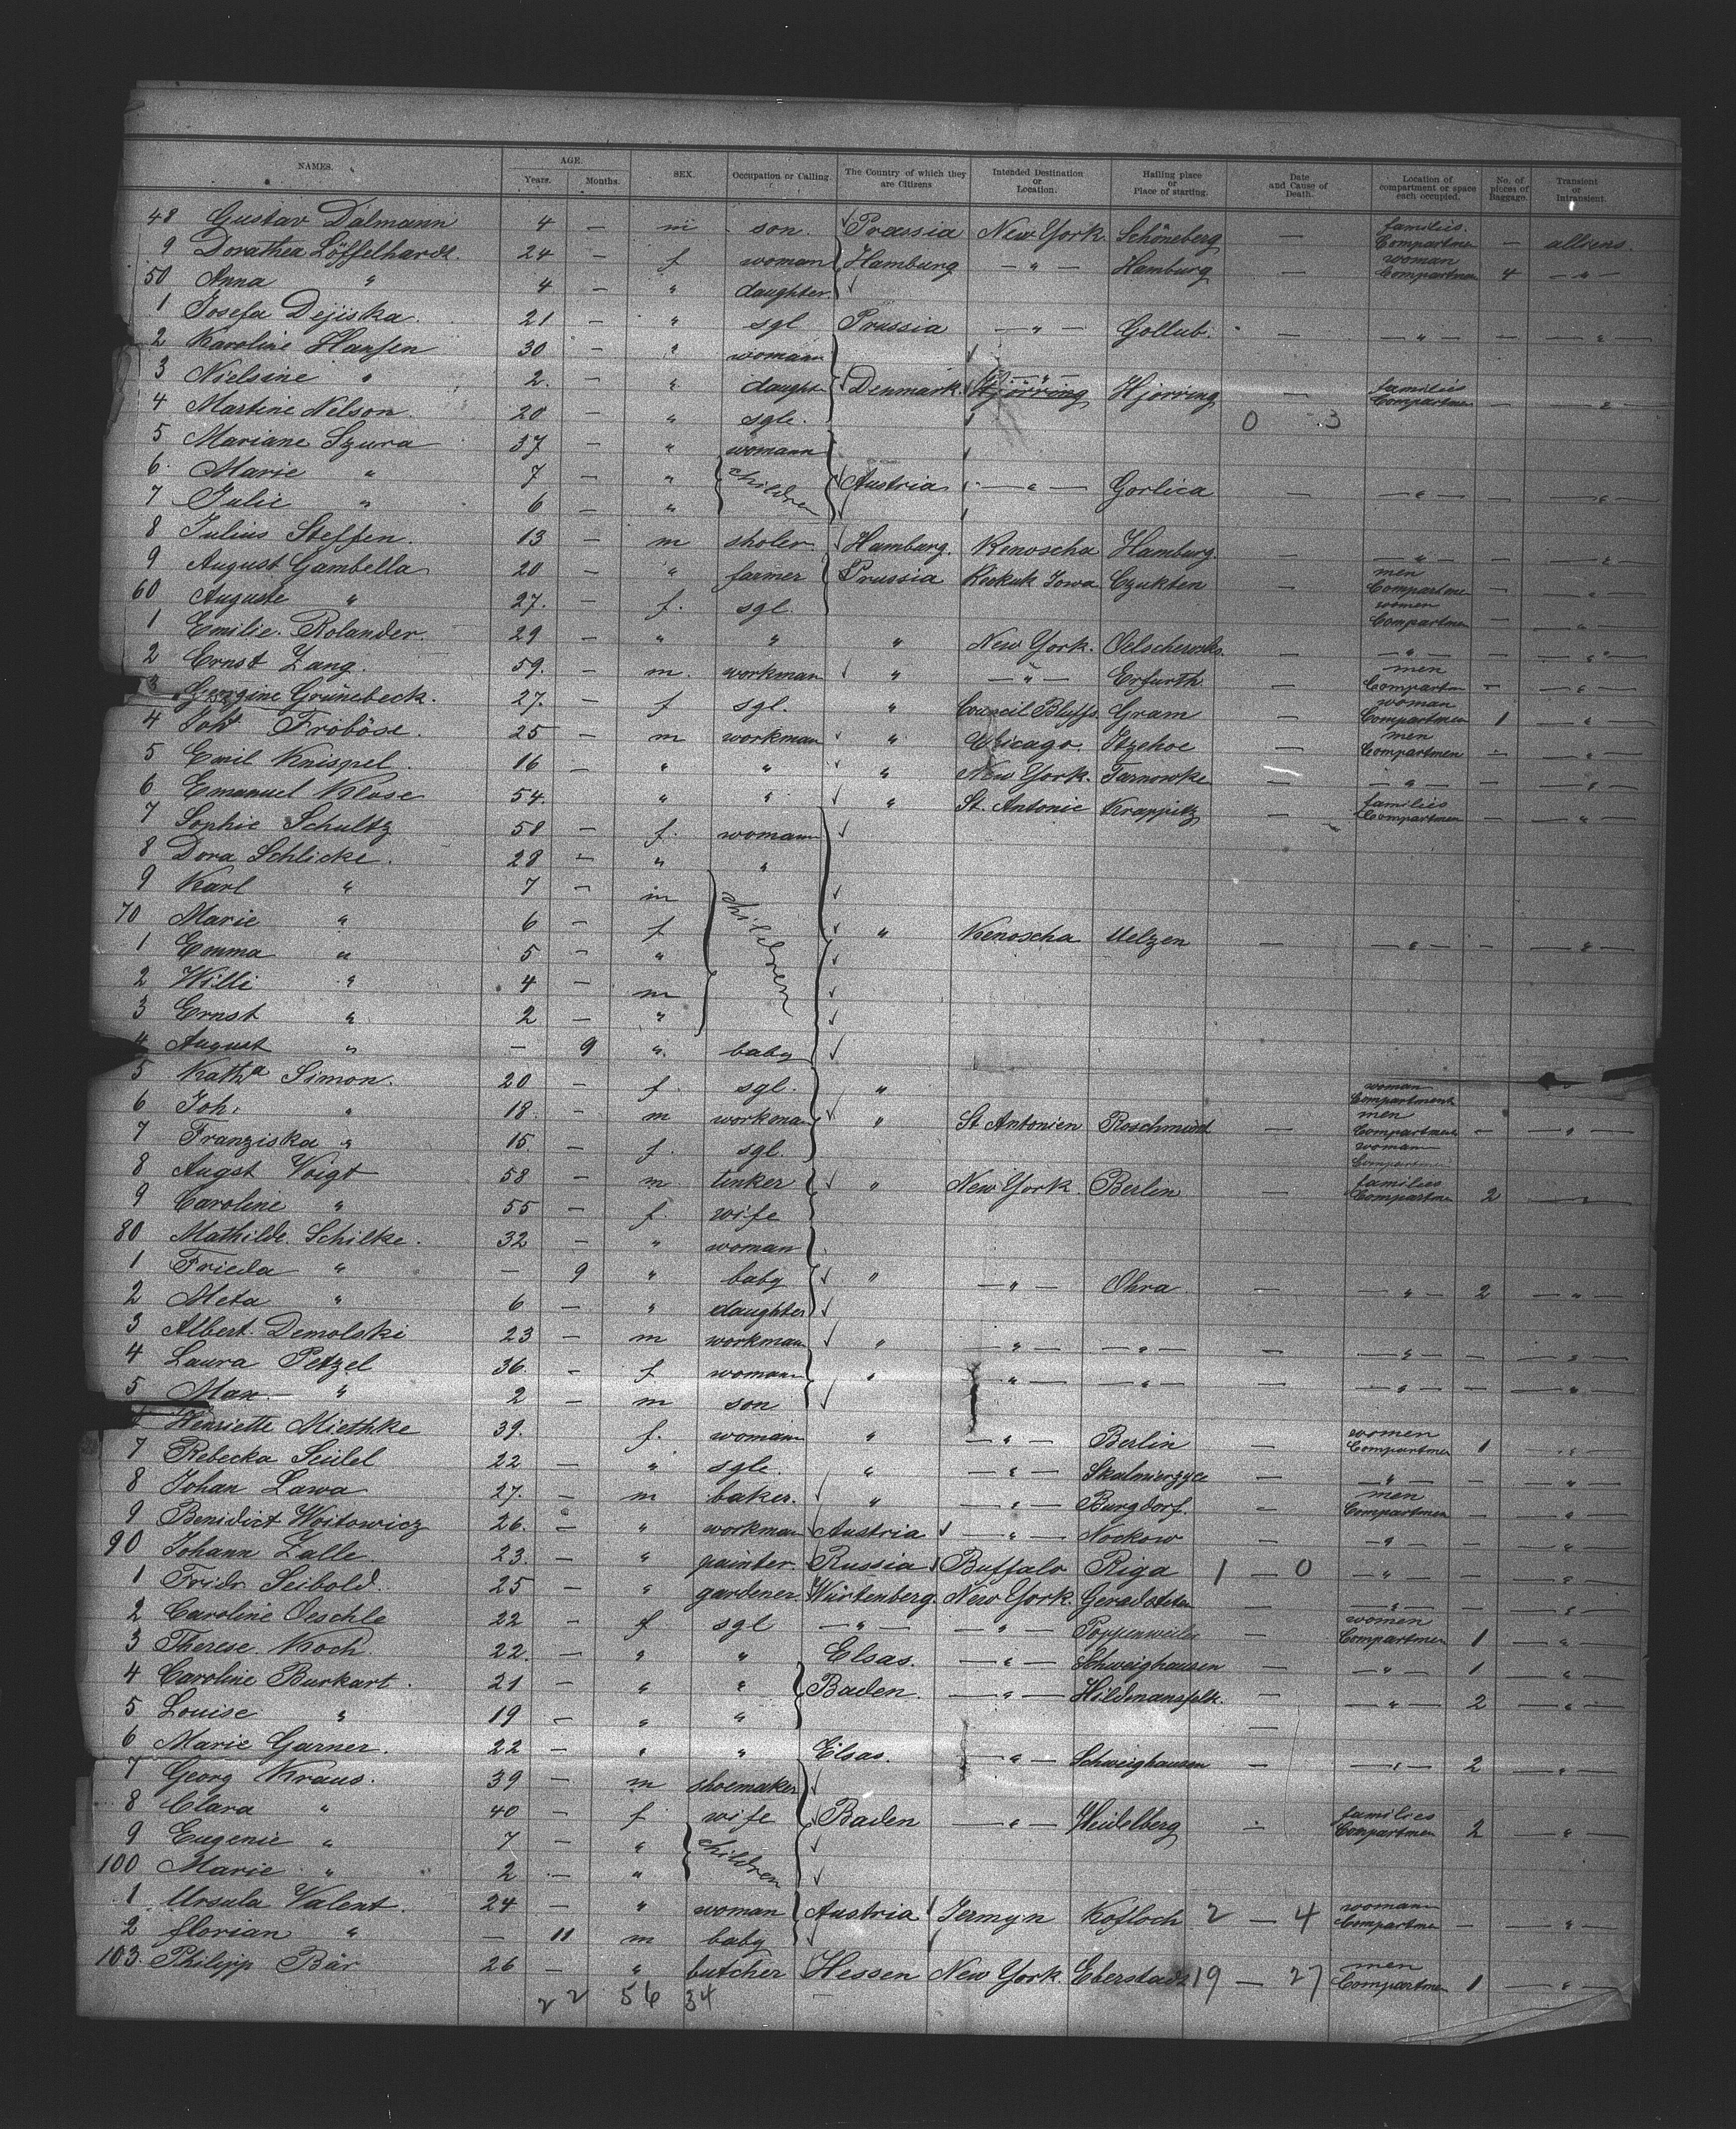 NAMES. AGE. Years. Months. SEX. Occupation or Calling. The Country of which they are Citizens Intended Destination or Location. Hailing place or Place of starting. Date and Cause of Death. Location of compartment or space each occupied. No. of pieces of Baggage. Transient or Intransient.
48 Gustav Dalmann 4 — m son. Prussia New York Schöneberg — families Compartmen — alliens.
9 Dorathea Löffelhardt 24 — f woman Hamburg — " — Hamburg — woman Compartmen 4 — " —
50 Anna " 4 — " daughter
1 Josefa Dejiska 21 — " sgl Prussia — " — Gollub. — — " — — — " —
2 Karoline Hansen 30 — " woman
3 Nielsine " 2. — " daught Denmark. — " — Hjörring Hjorring — families Compartmen — — " —
4 Martine Nelson. 20 — " sgle. 0 3
5 Mariane Szura 37 — " woman
6. Marie " 7 — " children Austria — " — Gorlica — — " — — " —
7 Julie " 6 — "
8 Julius Steffen. 13 — m sholer Hamburg. Kenoscha Hamburg. — — " — — " —
9 August Gambella 20 — " farmer Prussia Keokuk Iowa Czukten men Compartmen — — " —
60 Auguste " 27. — f. sgl. women Compartmen — — " —
1 Emilie Rolander. 29 — " " " New York. — — " — — — " —
2 Ernst Zang. 59. — m. workman " — " — Erfurth — men Compartm — — " —
3 Georgine Grünebeck. 27. — f sgl. " Council Bluffs. Gram — woman Compartmen 1 — " —
4 Joh Froböse. 25 — m workman " Chicago. Itzehoe — men Compartmen — — " —
5 Emil Knispel. 16 — " " " New York. Tarnowke — — " — — — " —
6 Emanuel Klose 54. — " " " St. Antonie Krappitz — families Compartmen — — " —
7 Sophie Schultz 58 — f. woman
8 Dora Schlicke. 28 — " "
9 Karl " 7 — m children
70 Marie " 6 — f " Kenoscha Uelzen — — " — — — " —
1 Emma " 5 — "
2 Willi " 4 — m
3 Ernst " 2 — "
4 August " — 9 " baby
5 Kath a Simon. 20 — f. sgl. " woman Compartment
6 Joh. " 18. — m workman " St. Antonien — men Compartment — — " —
7 Franziska " 15. — f. sgl. woman Compartmen
8 Augst Voigt 58 — m tinker " New York. Berlin — families Compartmen 2 — " —
9 Caroline " 55 — f. wife
80 Mathilde Schilke. 32 — " woman
1 Frieda " — 9 " baby " — " — Ohra — — " — 2 — " —
2 Meta " 6 — " daughter
3 Albert Demolski 23 — m workman " — " — — " — — — " — — " —
4 Laura Petzel 36. — f woman " — " — — " — — — " — — — " —
5 Max " 2 — m son
Henriette Miethke 39. f. woman " — " — Berlin — women Compartmen 1 — " —
7 Rebecka Seidel 22 — " sgle. " — " — Skalmierzyce — — " — — — " —
8 Johan Lawa 27. — m baker. " — " — Burgdorf. — men Compartmen — — " —
9 Benidict Woitowicz 26. — " workman Austria — " — Nockow — — " — — — " —
90 Johann Zalle. 23. — " painter. Russia Buffalo Riga 1 — 0 — " — — — " —
1 Fridr. Seibold. 25 — " gardener. Würtenberg. New York. — — " — — " —
2 Caroline Oeschle 22 — f sgl — " — — " — Poppenweiler — women Compartmen 1 — " —
3 Therese Koch. 22. — " " Elsas. — " — Schweighausen — — " — 1 — " —
4 Caroline Burkart. 21 — " " Baden. — " — — — " — 2 — " —
5 Louise " 19 — " " —
6 Marie Garner. 22 — " " Elsas. — " — Schweighausen — — " — 2 — " —
7 Georg Kraus. 39 — m shoemaker
8 Clara " 40 — f wife Baden — " — Heidelberg — families Compartmen 2 — " —
9 Eugenie " 7 — " children
100 Marie " 2 — "
1 Ursula Valent. 24 — " woman Austria Jermyn Kofloch 2 — 4 woman Compartme — — " —
2 Florian " — 11 m baby
103. Philipp Bär 26 — " butcher Hessen New York. Eberstadt 19 — 27 men Compartmen 1 — " —
2 2 56 34